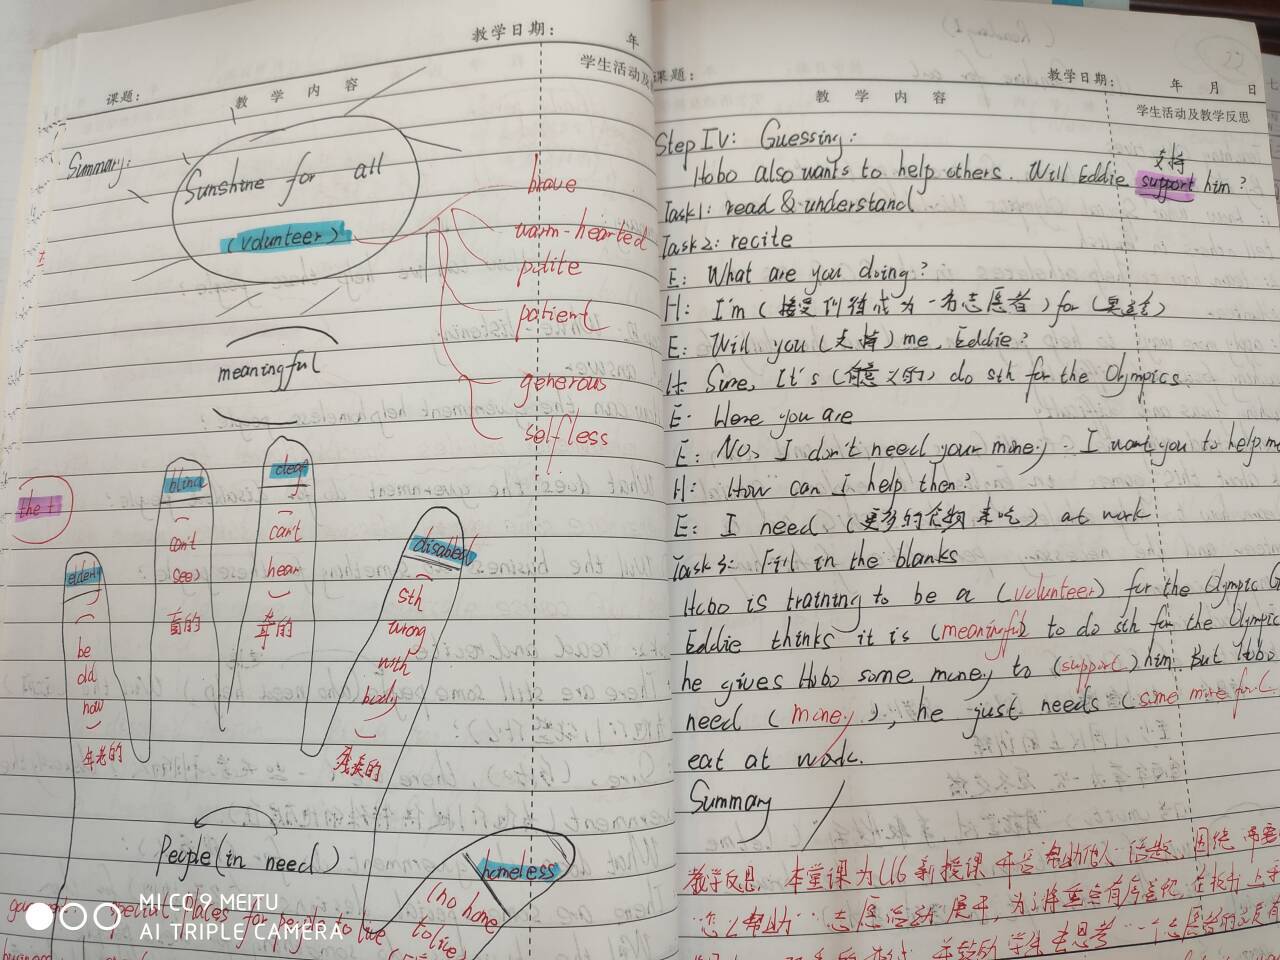 教学日期: 年
课题: 教学内容 学生活动及
Summary:
Sunshine for all
(volunteer)
brave
warm-hearted
polite
patient
generous
selfless
meaningful
the +
elderly
(
be
old
now
)
年老的
blind
(
can't
see)
盲的
deaf
(
can't
hear
)
聋的
disabled
(
sth
wrong
with
body
)
残疾的
People (in need)
homeless
(no home
to live
special places for people to live
MI CC 9 MEITU
AI TRIPLE CAMERA
22
课题: 教学日期: 年 月 日
教学内容 学生活动及教学反思
Step IV: Guessing:
支持
Hobo also wants to help others. Will Eddie support him?
Task1: read & understand
Task2: recite
E: What are you doing?
H: I'm (接受训练成为一名志愿者) for (奥运会)
E: Will you (支持) me, Eddie?
H: Sure, It's (有意义的) do sth for the Olympics
E: Here you are
E: No, I don't need your money. I want you to help me
H: How can I help then?
E: I need (更多的食物来吃) at work
Task 3: Fill in the blanks
Hobo is training to be a (volunteer) for the Olympic G
Eddie thinks it is (meaningful) to do sth for the Olympic
he gives Hobo some money to (support) him. But Hobo
need (money), he just needs (some more food
eat at work.
Summary
教学反思 本堂课为U6新授课